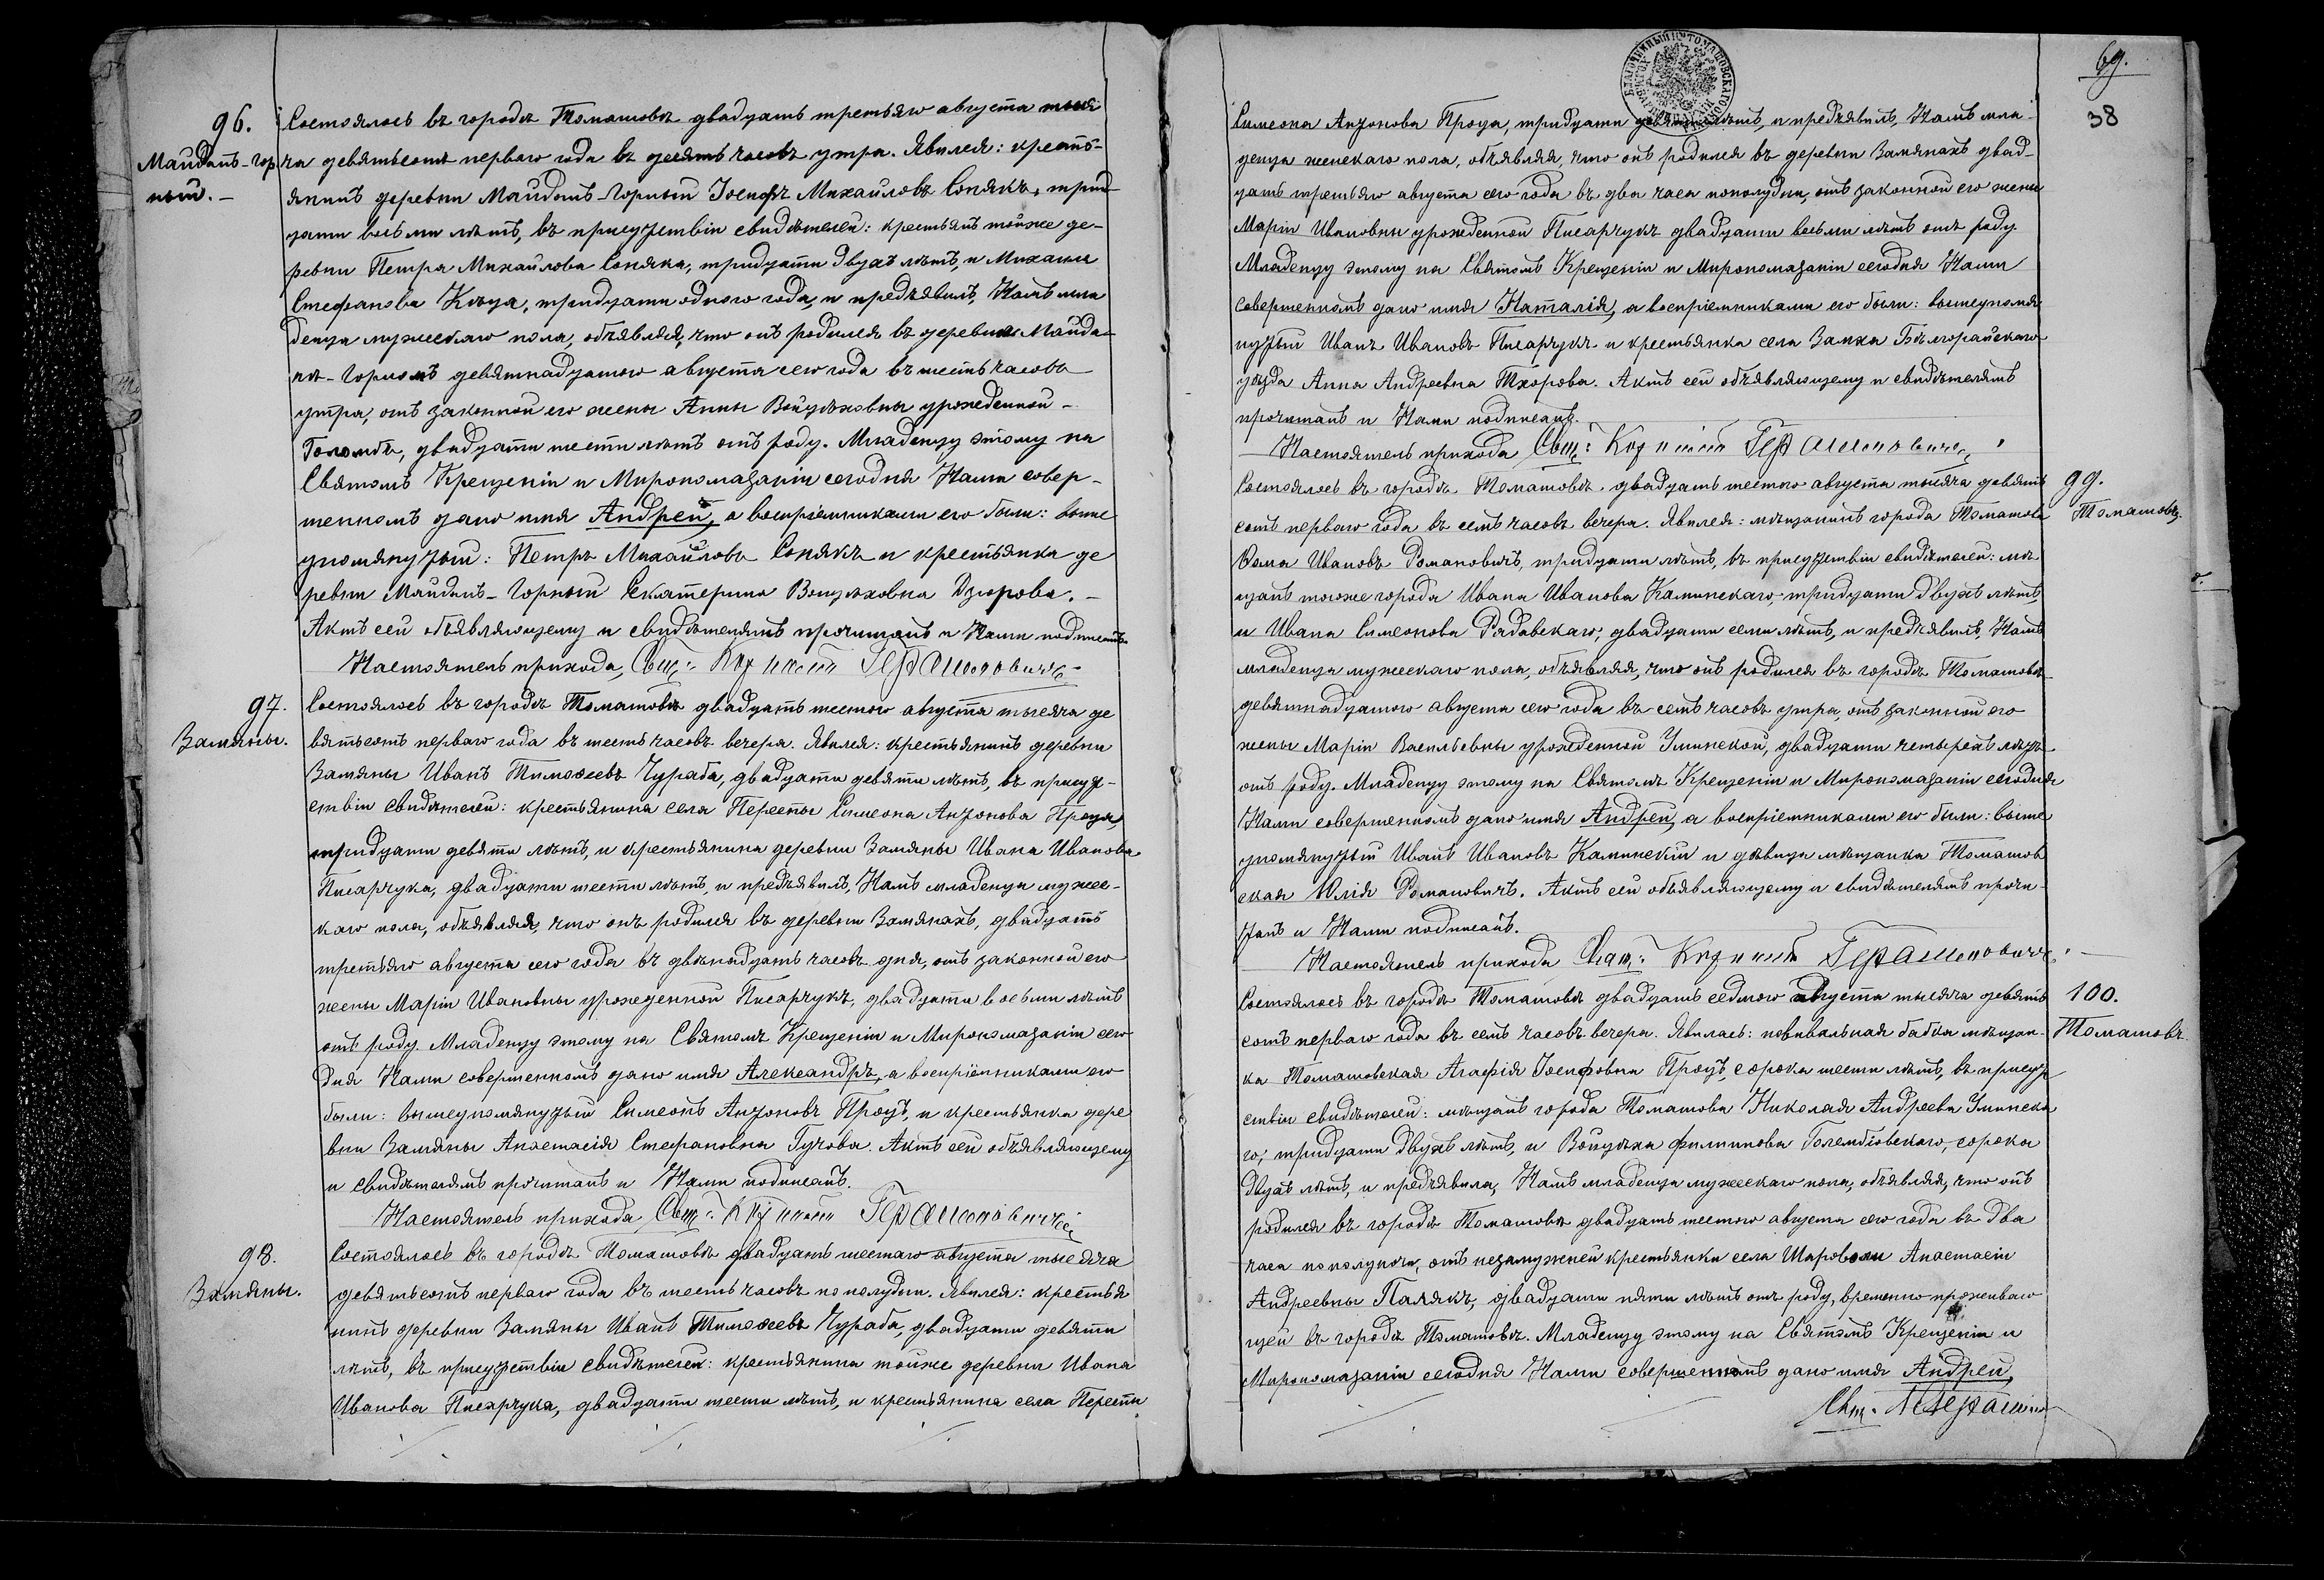 96.
Майданъ-Гор
ный.-
Состоялось въ городѣ Томашовѣ двадцать третьяго августа тыся
ча девятьсотъ перваго года въ десять часовъ утра. Явился: кресть-
янинъ деревни Майданъ-Горный Іосифъ Михайловъ Сонякъ, трид
цати восьми лѣтъ, въ присутствіи свидѣтелей: крестьянъ тойже де-
ревни Петра Михайлова Соняка, тридцати двухъ лѣтъ, и Михаила
Стефанова, тридцати одного года, и предъявилъ Намъ мла
денца мужескаго пола, объявляя, что онъ родился въ деревнѣ Майда-
нѣ-Горномъ девятнадцатого августа сего года въ шесть часовъ
утра, отъ законной его жены Анны Войцѣховны урожденной-
Голомбъ, двадцати шести лѣтъ отъ роду. Младенцу этому на
Святомъ Крещеніи и Миропомазаніи сегодня Нами совер-
шенномъ дано имя Андрей, а воспріемниками его были: выше
упомянутый: Петръ Михайловъ Сонякъ и крестьянка де
ревни Майданъ-Горный Екатерина Войцѣховна Дзюрова.-
Актъ сей объявляющему и свидѣтелямъ прочитанъ и Нами подписанъ
Настоятель прихода, Свящ: Герасимовичъ
97.
Замяны.
Состоялось въ городѣ Томашовѣ двадцать шестого августа тысяча де
вятьсотъ перваго года въ шесть часовъ вечера. Явился: крестьянинъ деревни
Замяны Иванъ Тимоѳеевъ Чураба, двадцати девяти лѣтъ, въ присут-
ствіи свидѣтелей: крестьянина села Пересты Симеона Антонова Проца,
тридцати девяти лѣтъ, и крестьянина деревни Замяны Ивана Иванова
Писарчука, двадцати шести лѣтъ, и предъявилъ, Намъ младенца мужес-
каго пола, объявляя, что онъ родился въ деревни Замянахъ, двадцать
третьяго августа сего года въ двѣнадцать часовъ дня, отъ законной его
жены Маріи Ивановны урожденной Писарчукъ, двадцати восьми лѣтъ
отъ роду. Младенцу этому на Святомъ Крещеніи и Миропомазаніи сего
дня Нами совершенномъ дано имя Александръ, а воспріемниками его
были: вышеупомянутый Симеонъ Антоновъ Процъ, и крестьянка дере
вни Замяны Анастасія Стефановна Гучова. Актъ сей объявляющему
и свидѣтелямъ прочитанъ и Нами подписанъ.
Настоятель прихода Свящ: Герасимовичъ
98.
Замяны.
Состоялось въ городѣ Томашовѣ двадцать шестаго августа тысяча
девятьсотъ перваго года въ шесть часовъ пополудни. Явился: крестья
нинъ деревни Замяны Иванъ Тимоѳеевъ Чураба, двадцати девяти
лѣтъ, въ присутствіи свидѣтелей: крестьянина тойже деревни Ивана
Иванова Писарчука, двадцати шести лѣтъ, и крестьянина села Пересты
69.
38
Симеона Антонова Проца, тридцати девяти лѣтъ, и предъявилъ, Намъ мла-
денца женскаго пола, объявляя, что онъ родился въ деревни Замянахъ двад-
цать третьяго августа сего года въ два часа пополудни, отъ законной его жены
Маріи Ивановны урожденной Писарчукъ двадцати восьми лѣтъ отъ роду.
Младенцу этому на Святомъ Крещеніи и Миропомазаніи сегодня Нами
совершенномъ дано имя Наталія, а воспріемниками его были: вышеупомя
нутый Иванъ Ивановъ Писарчукъ и крестьянка села Замха Бѣлгорайскаго
уѣзда Анна Андреевна Тхорова. Актъ сей объявляющему и свидѣтелямъ
прочитанъ и Нами подписанъ.
Настоятель прихода Свящ: Герасимовичъ
99.
Томашовъ.
Состоялось въ городѣ Томашовѣ двадцать шестого августа тысяча девять
сотъ перваго года въ семь часовъ вечера. Явился: мѣщанинъ города Томашова
Ѳома Ивановъ Романовичъ, тридцати лѣтъ, въ присутствіи свидѣтелей: мѣ
щанъ тогоже города Ивана Иванова Каминскаго, тридцати двухъ лѣтъ,
и Ивана Симеонова Радавскаго, двадцати семи лѣтъ, и предъявилъ, Намъ
младенца мужескаго пола, объявляя, что онъ родился въ городѣ Томашовѣ
девятнадцатого августа сего года въ семь часовъ утра, отъ законной его
жены Маріи Васильевны урожденной Улинской, двадцати четырехъ лѣтъ
отъ роду. Младенцу этому на Святомъ Крещеніи и Миропомазаніи сегодня
Нами совершенномъ дано имя Андрей, а воспріемниками его были: выше
упомянутый Иванъ Ивановъ Каминскій и дѣвица мѣщанка Томашов
ская Юлія Романовичъ. Актъ сей объявляющему и свидѣтелямъ прочи-
танъ и Нами подписанъ.
Настоятель прихода Свящ: Герасимовичъ
100.
Томашовъ
Состоялось въ городѣ Томашовѣ двадцать седмого августа тысяча девять
сотъ перваго года въ семь часовъ вечера. Явилась: повивальная бабка мѣщан-
ка Томашовская Агафія Іосифовна Процъ, сорока шести лѣтъ, въ присут
ствіи свидѣтелей: мѣщанъ города Томашова Николая Андреева Улинска
го, тридцати двухъ лѣтъ, и Войцѣха Филиппова Голембіовскаго, сорока
двухъ лѣтъ, и предъявила, Намъ младенца мужескаго пола, объявляя, что онъ
родился въ городѣ Томашовѣ двадцать шестого августа сего года въ два
часа пополуночи, отъ незамужней крестьянки села Шароволи Анастасіи
Андреевны Палякъ, двадцати пяти лѣтъ отъ роду, временно проживаю
щей въ городѣ Томашовѣ. Младенцу этому на Святомъ Крещеніи и
Миропомазаніи сегодня Нами совершенномъ дано имя Андрей,
Свящ.